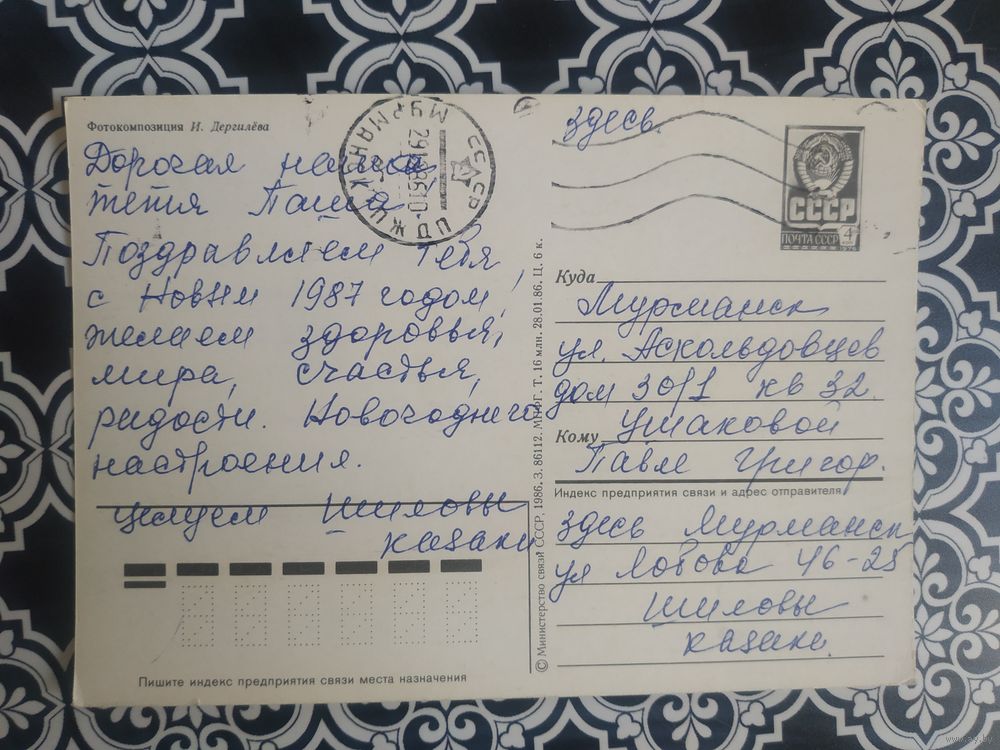 Фотокомпозиция И. Дергилёва
Дорогая наша
тётя Паша
Поздравляем тебя
с Новым 1987 годом,
желаем здоровья,
мира, счастья,
радости. Новогоднего
настроения.
целуем Шиловы
казаки
Пишите индекс предприятия связи места назначения
© Министерство связи СССР, 1986. З. 86112. МПФГ. Т. 16 млн. 28.01.86. Ц. 6 к.
МУРМАНСК
СССР
здесь.
СССР
ПОЧТА СССР 4
Куда
Мурманск
ул. Аскольдовцев
дом 30/1 кв 32.
Кому Ушаковой
Павле Григор.
Индекс предприятия связи и адрес отправителя
здесь Мурманск
ул Лобова 46-25
Шиловы
казаки.